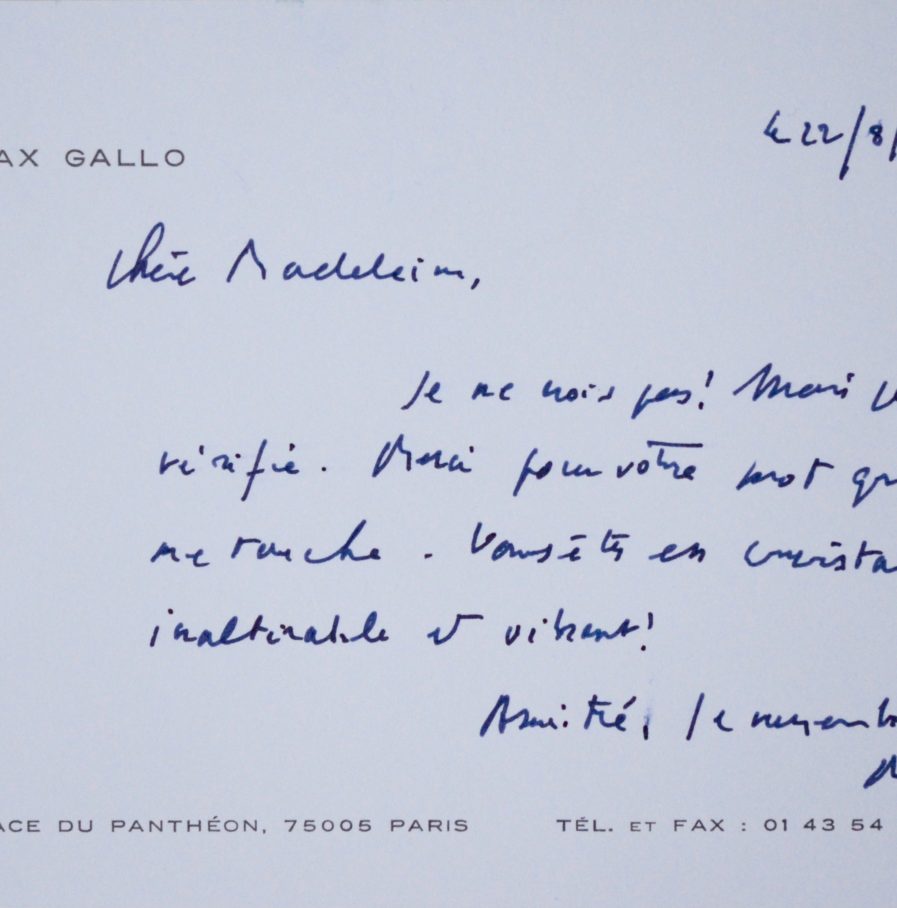 AX GALLO
le 22/8/
Chère Madeleine,
Je ne crois pas! Mais
vérifié. Merci pour votre mot qu
me touche. Vous êtes en
inaltérable et vibrant!
Amitié,
ACE DU PANTHÉON, 75005 PARIS TÉL. ET FAX : 01 43 54